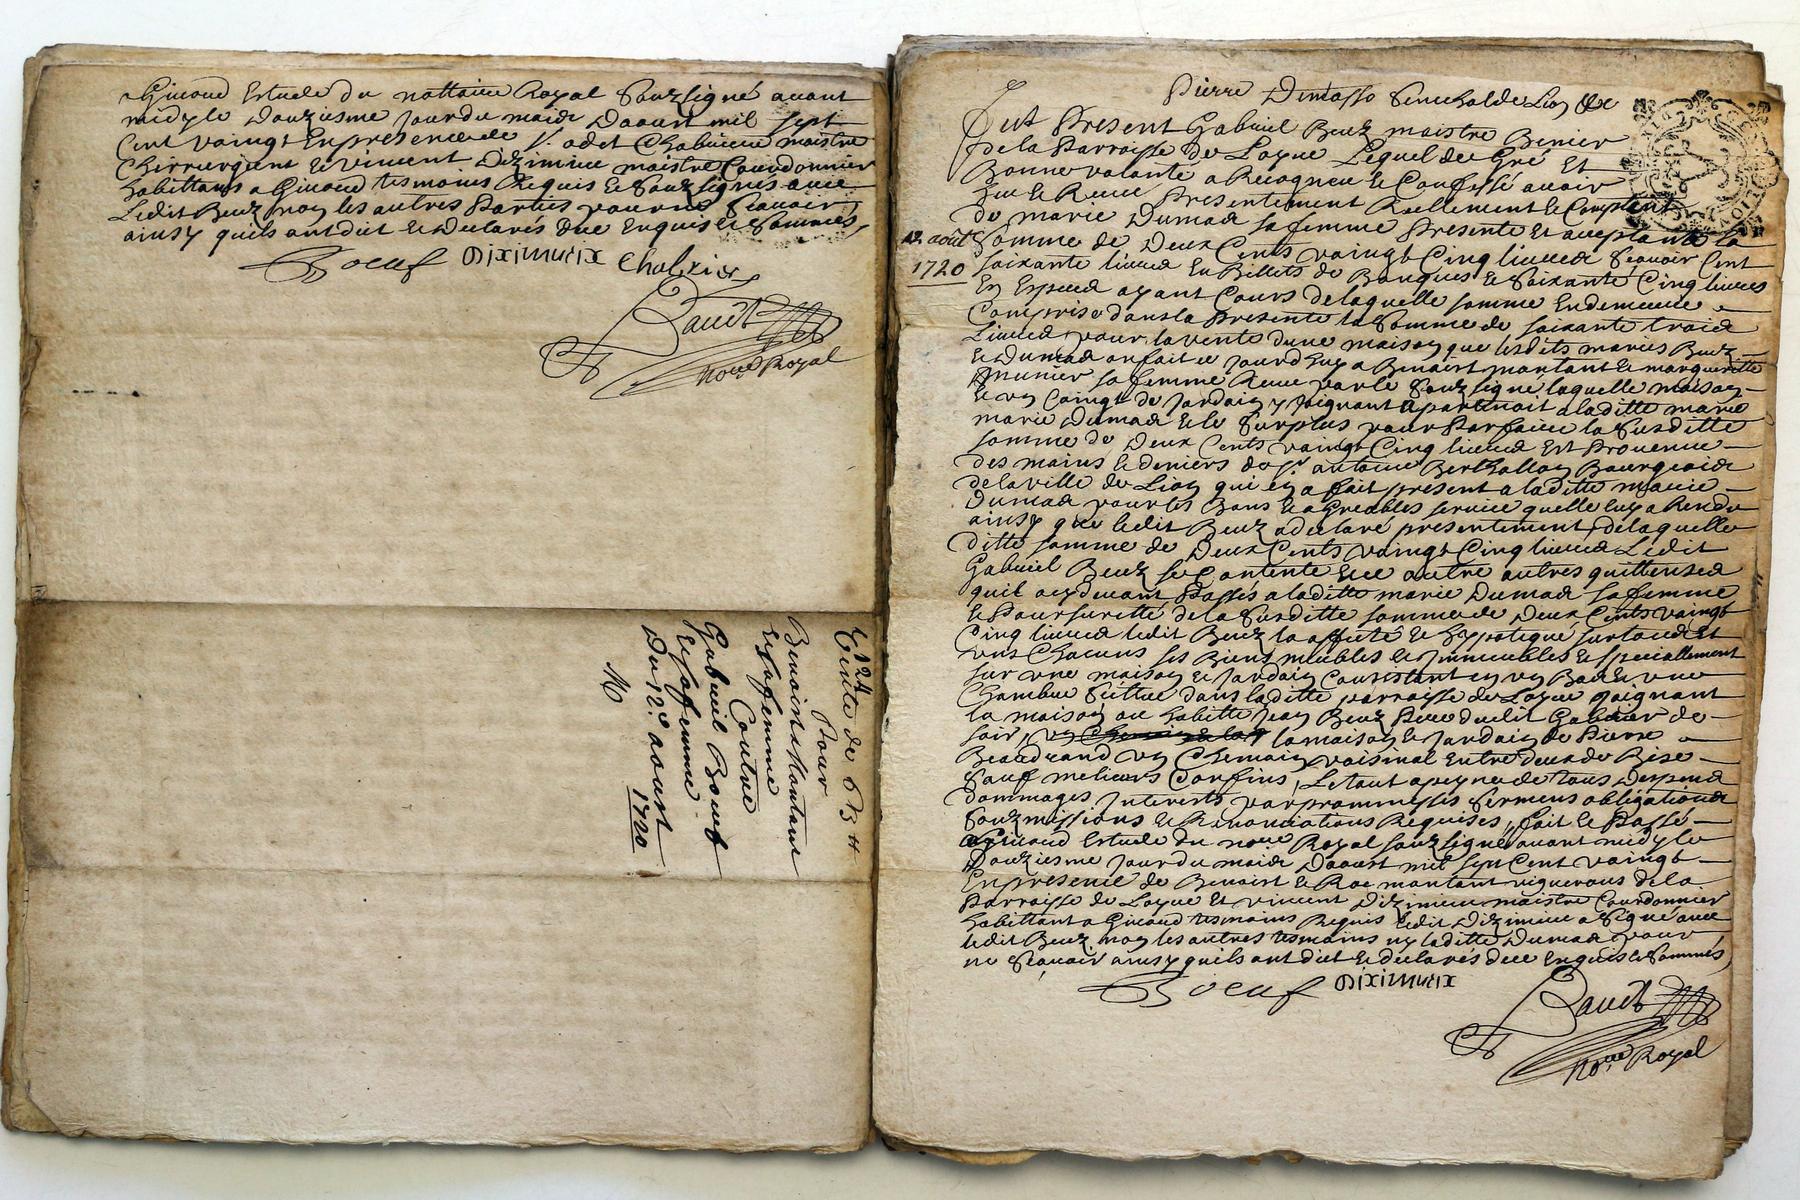 a Giraud Estude du nottaire Royal Soubzsigné avant
midy le douziesme jour du mois daoust mil sept
Cent vaingt En presence de Sr. odet Chabriere maistre
Chirurgient et vincent Diziminie maistre Courdonnier
habittans a Giraud tesmoins Requis et Soubzsignés avec
Ledit Beuz non les autres Parties pour ne Scavoir
ainsy quils ont dict et declarés due Enquis et Sommés
Boeuf Diximieix Chabrier
Baudt
Nore Royal
124
Vente de 63 tt
Pour
Benoist Montant
et sa femme
Contre
Gabriel Boeuf
et sa femme
Du 12e aoust
1720
Pierre Dematto Senechal de Lion &c
Fut Present Gabriel Beuz maistre
de la Parroisse de Loyse Lequel de Gré Et
Bonne volonte a Recogneu et Confessé avoir
heu et Receu Presentement Reellement et Comptant
de marie Dumas sa femme Presente Et acceptante la
12. août
1720
Somme de Deux Cents vaingt Cinq livres Scavoir Cent
soixante livres En Billets de Banque et Soixante Cinq livres
En Especes ayant Cours de laquelle somme En demeure
Comprise dans la Presente la Somme de soixante trois
Livres pour la vente dune maison que lesdits mariés Beuz
et Dumas on fait ce jourdhuy a Benoist montant et margueritte
munier sa femme Receu par le Soubzsigné laquelle maison
et un Coingt de Jardain y Joignant apartenoit a laditte marie
marie Dumas et le Surplus pour Parfaire la Susditte
somme de Deux Cents vaingt Cinq livres Est Provenue
des mains et deniers de Sr. antoine Berthollon Bourgeois
de la ville de Lion qui en a fait present a laditte marie
Dumas pour les Bons et agreables service quelle luy a Rendu
ainsy que ledit Beuz a declaré presentement, de laquelle
ditte somme de Deux Cents vaingt Cinq livres Ledit
Gabriel Beuz se Contente autre autres quittences
quil a cy devant Passés a laditte marie Dumas sa femme
et Pour suretté de la Susditte somme de Deux Cents vaingt
Cinq livres ledit Beuz la affecté et hypotequé sur tous Et
uns Chacuns ses Biens meubles et immeubles et speciallement
sur une maison et Jardain Consistant en un Bas et une
Chambre Scittue dans laditte parroisse de Loyse joignant
la maison ou habitte Jean Beuz Pere dudit Gabriel de
soir, la maison et Jardain de Pierre
Beaudrand un Chemain voisinal Entre deux de Bise
Sauf melieurs Confins, Le tout a peyne de tous despend
dommages Interests par promesses sermens obligations
Soubzmissions et Renonciations Requises, fait et Passé
a Giraud Estude du nore Royal soubzsigné avant midy le
douziesme jour du mois daoust mil sept Cent vaingt
En presence de Benoist et Roc montant vignerons de la
Parroisse de Loyse Et vincent Diziminie maistre Courdonnier
habittant a Giraud tesmoins Requis ledit Diziminie a Signé avec
ledit Beuz non les autres tesmoins ny laditte Dumas pour
ne Scavoir ainsy quils ont dict et declarés due Enquis et Sommés
Boeuf Diximieix
Baudt
Nore Royal